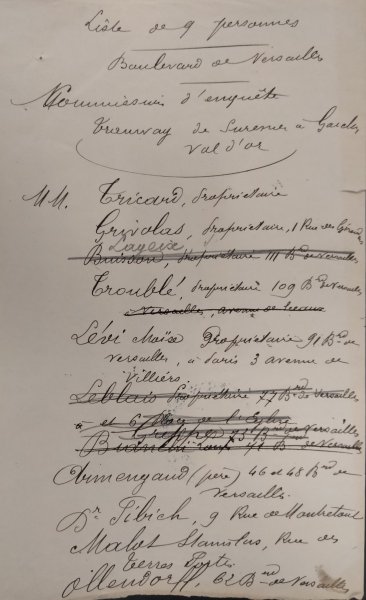 Liste de 9 personnes
Boulevard de Versailles
Commission d'enquête
Tramway de Suresnes à Garches
Val d'or
MM. Tricard, Propriétaire
Grivolas, Propriétaire, 1 Rue des
Buisson, Propriétaire 111 Bd de Versailles
Troublé, Propriétaire 109 Bd de Versailles
Versailles, avenue de
Lévi Moïse Propriétaire 91 Bd de
Versailles, à Paris 3 avenue de
Villiers
Leblais Propriétaire 77 Bd de Versailles
à et 6 Place de l'Eglise
73 Bd de Versailles
71 Bd de Versailles
Armengaud (père) 46 et 48 Bd de
Versailles.
Dr Pibich, 9 Rue de
Malot Stanislas, Rue des
Terres Fortes
Ollendorff, 62 Bnd de Versailles